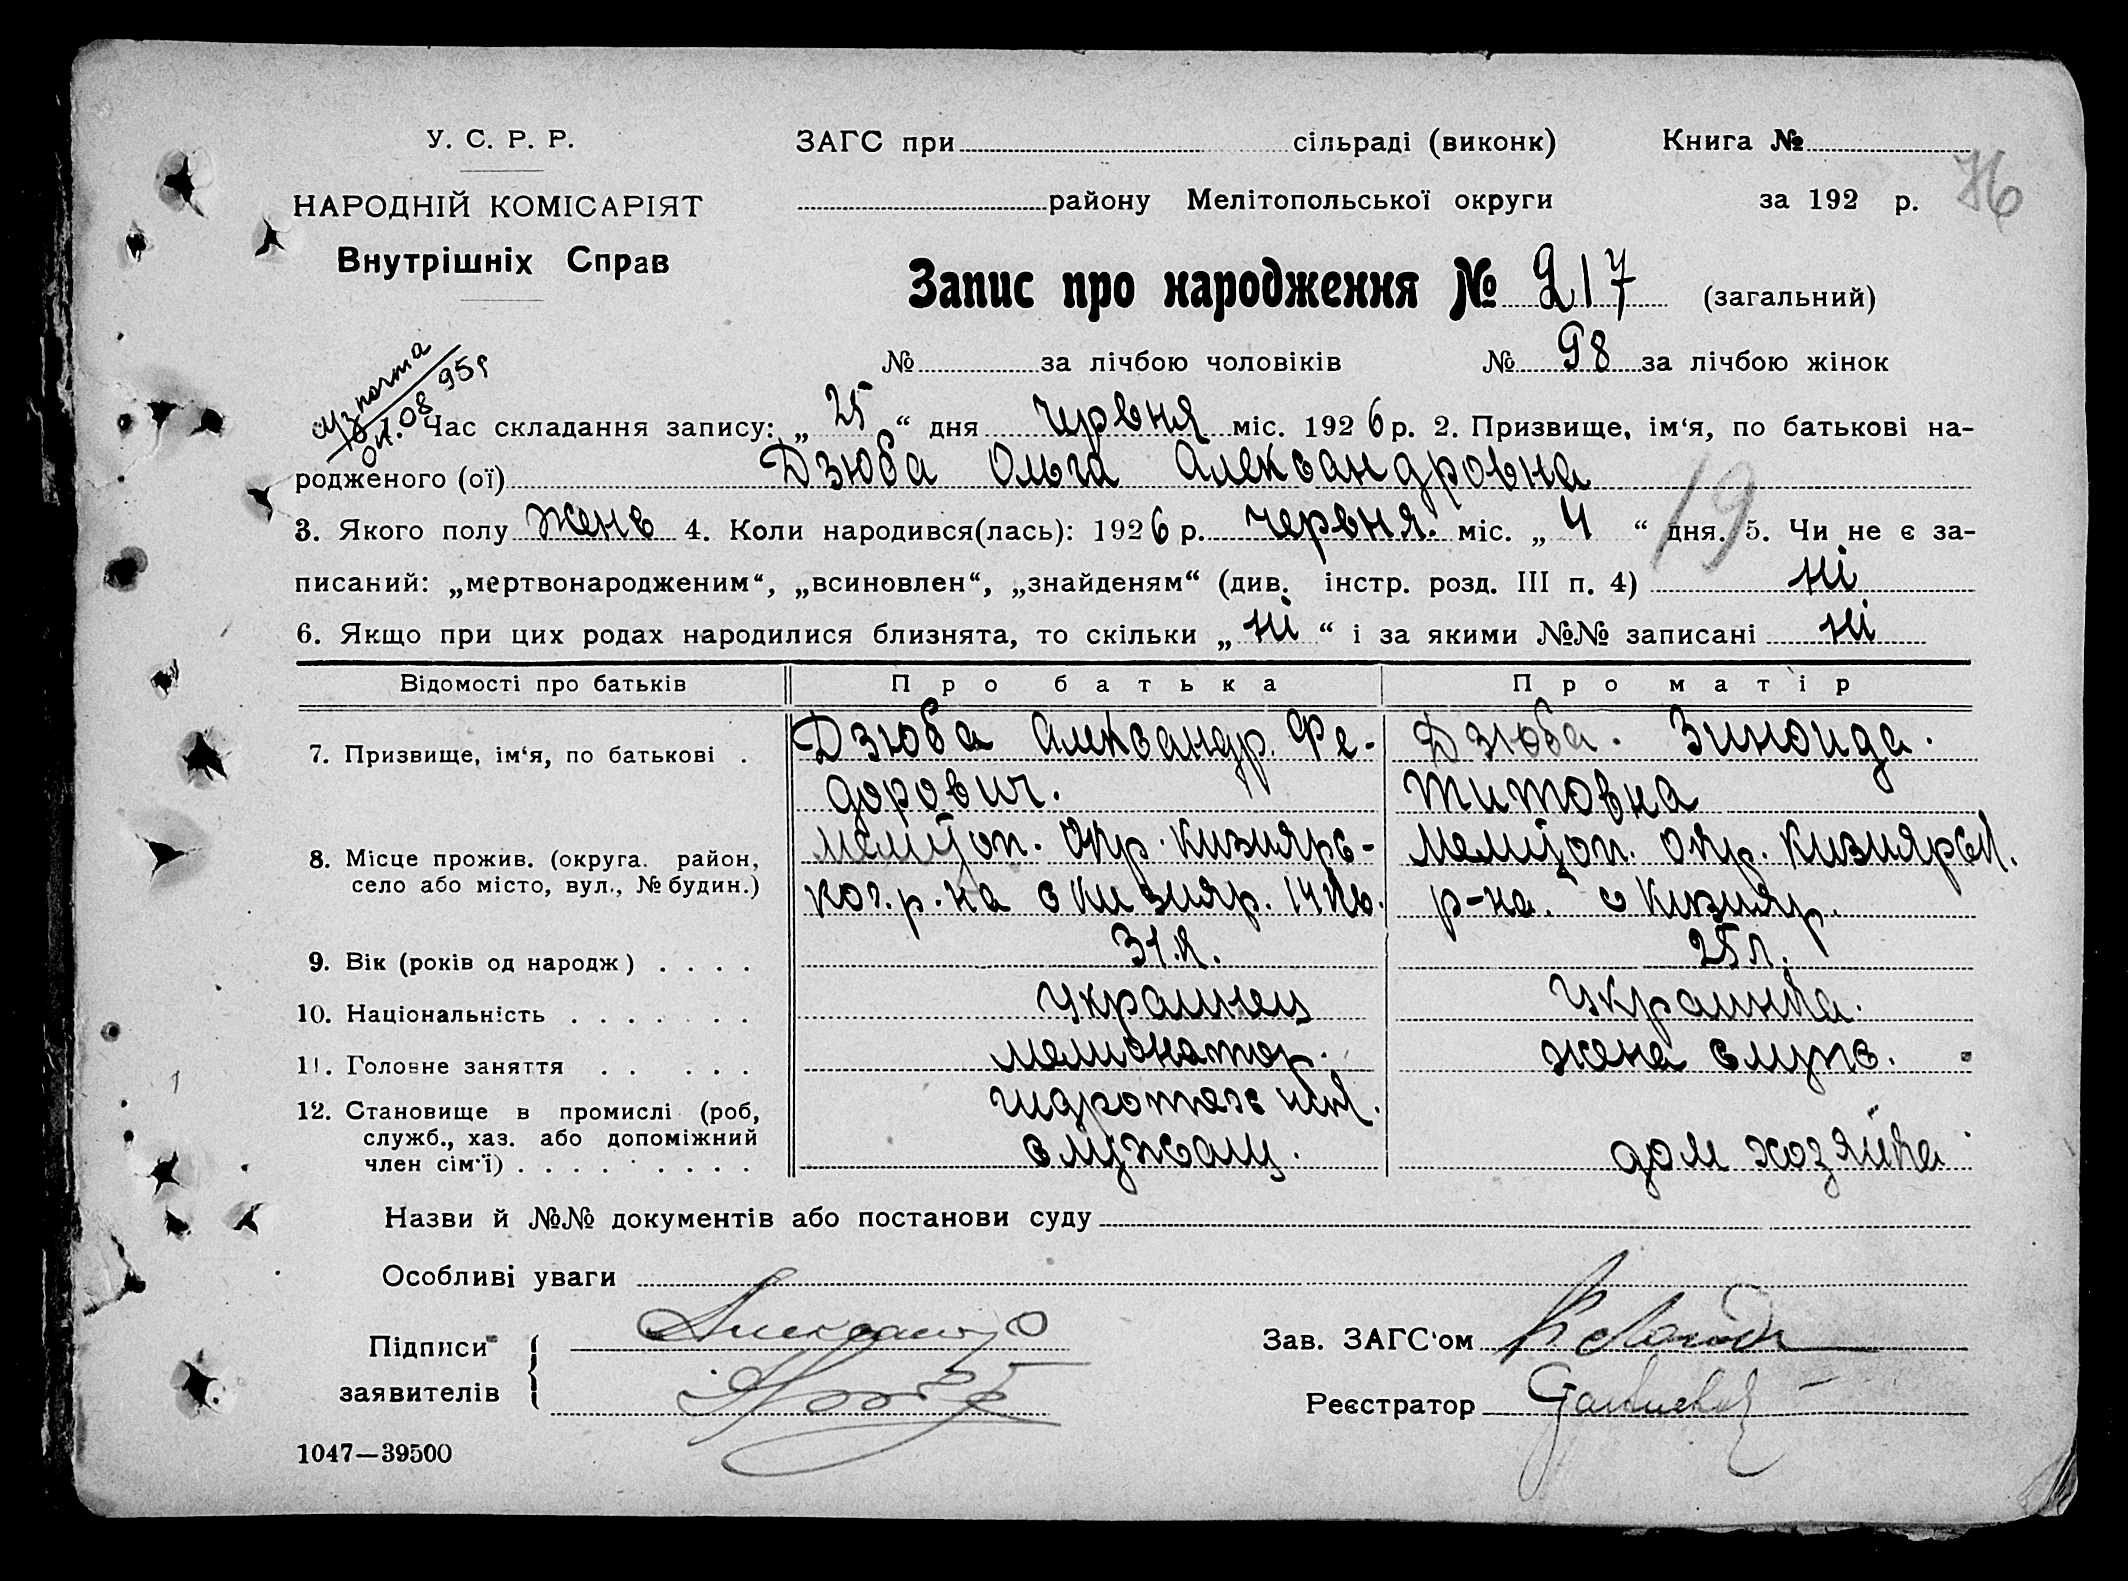 У. С. Р. Р.
НАРОДНІЙ КОМІСАРІЯТ
Внутрішніх Справ
ЗАГС при сільраді (виконк) Книга №
76
району Мелітопольської округи за 192 р.
Запис про народження № 217 (загальний)
№ за лічбою чоловіків № 98 за лічбою жінок
1. Час складання запису: „ 25 “ дня червня міс. 1926 р. 2. Призвище, ім‘я, по батькові на-
родженого (ої) Дзюба Ольга Александровна
3. Якого полу женс 4. Коли народився(лась): 1926 р. червня. міс. „ 4 “ дня. 5. Чи не є за-
19
писаний: „мертвонародженим“, „всиновлен“, „знайденям“ (див. інстр. розд. III п. 4) ні
6. Якщо при цих родах народилися близнята, то скільки „ ні “ і за якими №№ записані ні
Відомості про батьків Про батька Про матір
7. Призвище, ім‘я, по батькові . Дзюба Александр. Фе- Дзюба. Зиноида.
дорович. Титовна
8. Місце прожив. (округа. район, Меліτοп. окр. Кизиярс- Меліτοп. окр. Кизиярск.
село або місто, вул., № будин.) ког. р-на с Кизияр. 14 кв. р-на. с Кизияр.
9. Вік (років од народж) . . . . 31.л. 25 л.
10. Національність . . . . . . . Украинец Украинка.
11. Головне заняття . . . . . жена служ.
12. Становище в промислі (роб,
служб., хаз. або допоміжний
член сім‘ї) . . . . . . . . . служащ. дом хозяйка
Назви й №№ документів або постанови суду
Особливі уваги
Підписи
заявителів
Зав. ЗАГС‘ом
Реєстратор
1047—39500